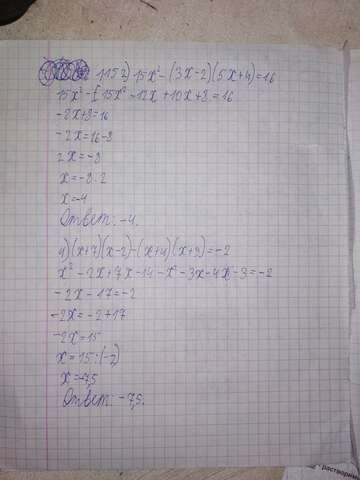 115 2) 15x²-(3x-2)(5x+4)=16
15x²-15x²-12x+10x+8=16
-2x+8=16
-2x=16-8
2x=-8
x=-8:2
x=-4
Ответ: -4.
4)(x+7)(x-2)-(x+4)(x+3)=-2
x²-2x+7x-14-x²-3x-4x-3=-2
-2x-17=-2
-2x=-2+17
-2x=15
x=15:(-2)
x=-7,5
Ответ: -7,5.
растворим